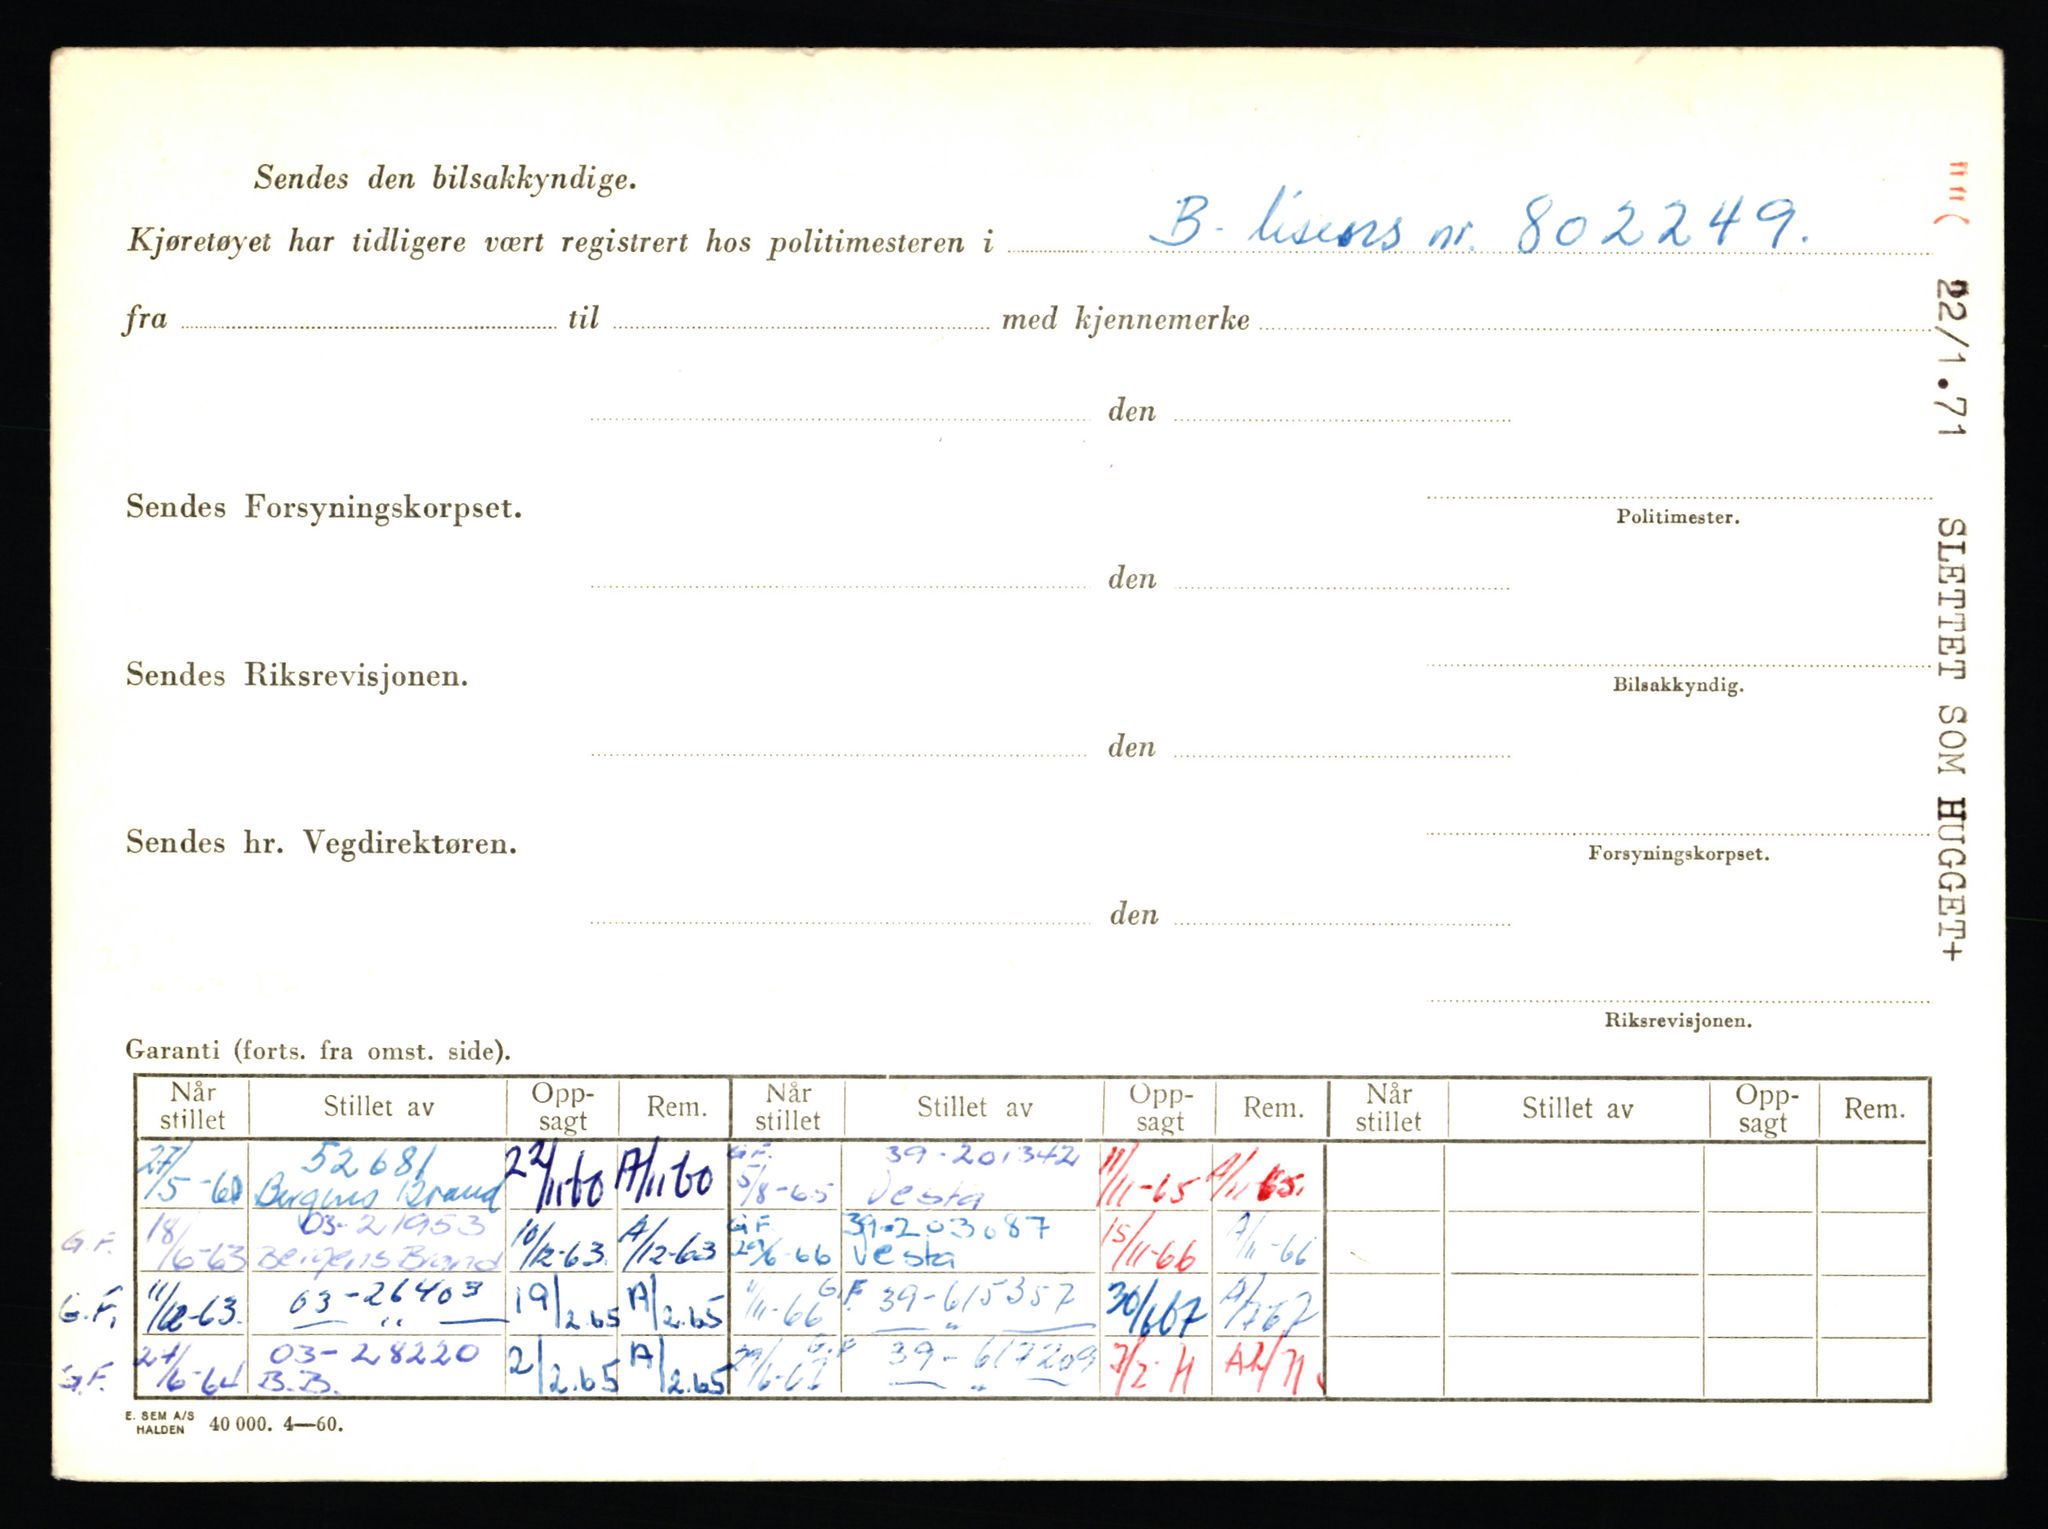 Sendes den bilsakkyndige.
Kjøretøyet har tidligere vært registrert hos politimesteren i B- lisens nr. 802249.
fra til med kjennemerke
den
Sendes Forsyningskorpset.
Politimester.
den
Sendes Riksrevisjonen.
Bilsakkyndig.
den
Sendes hr. Vegdirektøren.
Forsyningskorpset.
den
Riksrevisjonen.
22/1.71 SLETTET SOM HUGGET+
Garanti (forts. fra omst. side).
Når stillet Stillet av Opp-sagt Rem. Når stillet Stillet av Opp-sagt Rem. Når stillet Stillet av Opp-sagt Rem.
27/5-60 52681 Bergens Brand 22/11 60 A/11 60 G.F. 5/8-65 39-201342 Vesta 11/11-65 A/11 65.
G.F. 18/6-63 03-21953 Bergens Brand 10/12-63. A/12-63 G.F. 29/6-66 39-203087 Vesta 15/11-66 A/11-66
G.F. 11/12-63. 03-26403 — „ — 19/2.65 A/2.65 11/11-66 G.F. 39-615357 — „ — 30/6 67 A/7 67
G.F. 27/6-64 03-28220 B.B. 2/2.65 A/2.65 29/6-67 G.F. 39-617209 — „ — 7/2-71 A2/71.
E. SEM A/S
HALDEN 40 000. 4—60.